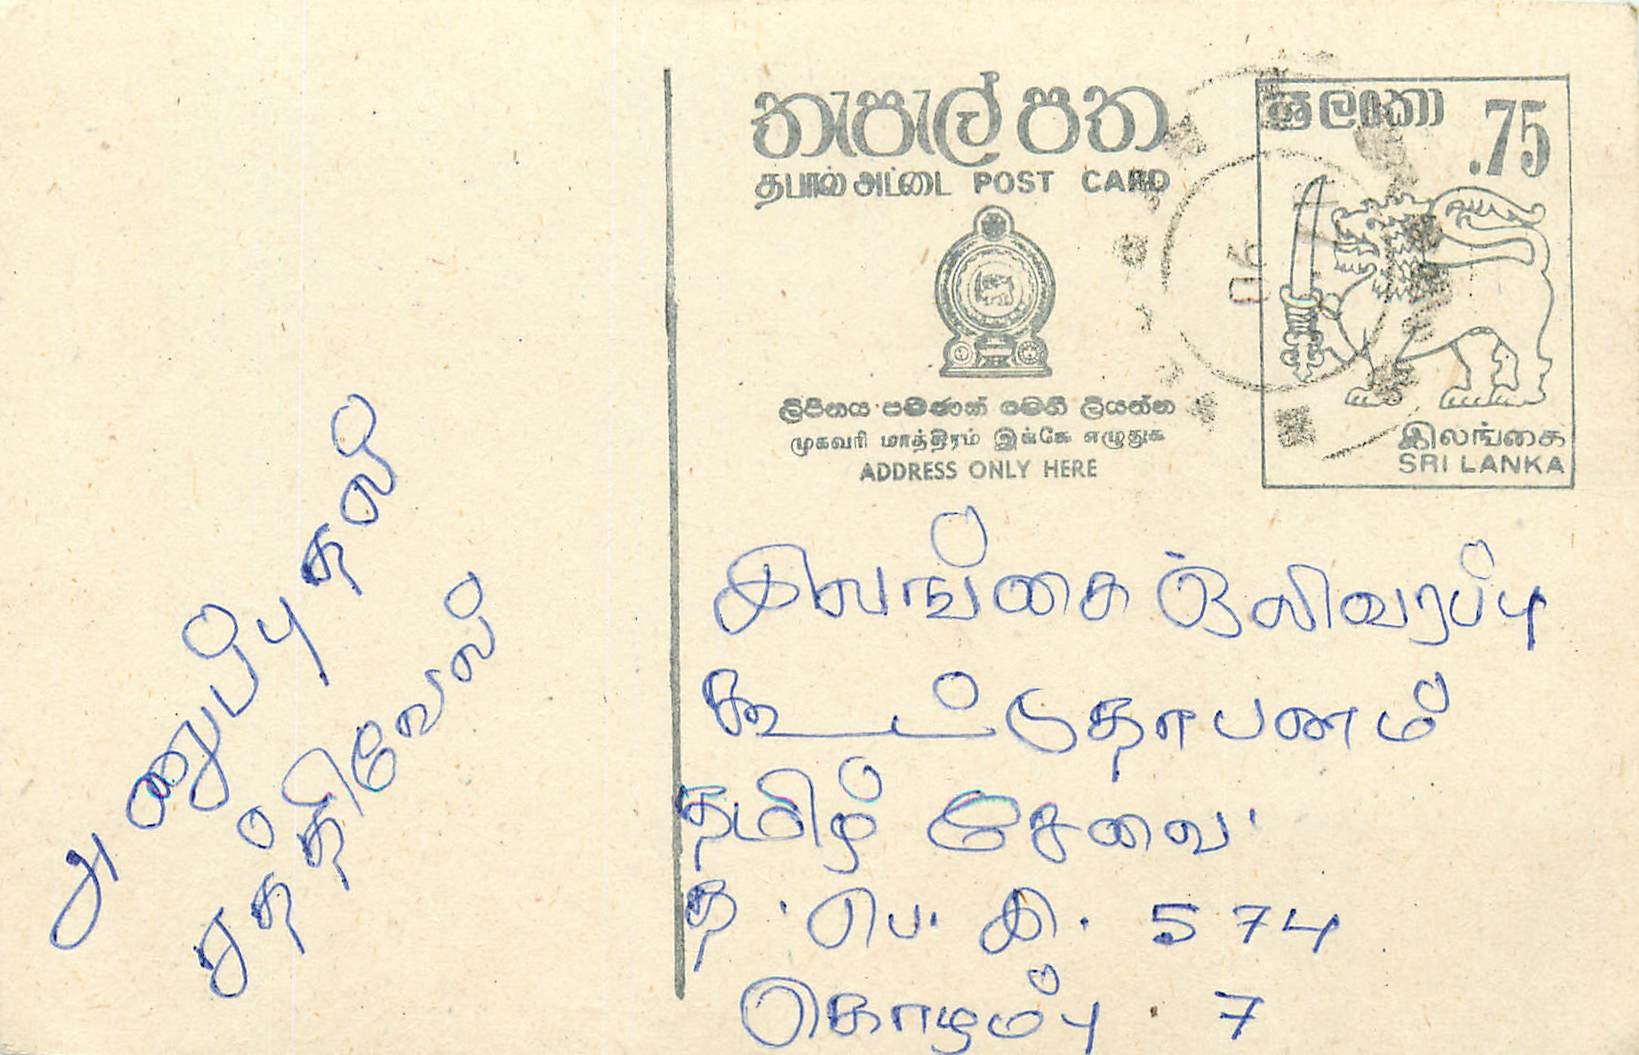 தபால் அட்டை POST CARD
තැපැල් පත
ශ්‍රී ලංකා
.75
ලිපිනය පමණක් මෙහි ලියන්න
முகவரி மாத்திரம் இங்கே எழுதுக
ADDRESS ONLY HERE
இலங்கை
SRI LANKA
அனுப்புதல்
சத்திவேல்
இலங்கை ஒலிவரப்பு
கூட்டுதாபனம்
தமிழ் சேவை
த. பெ. கி. 574
கொழம்பு. 7